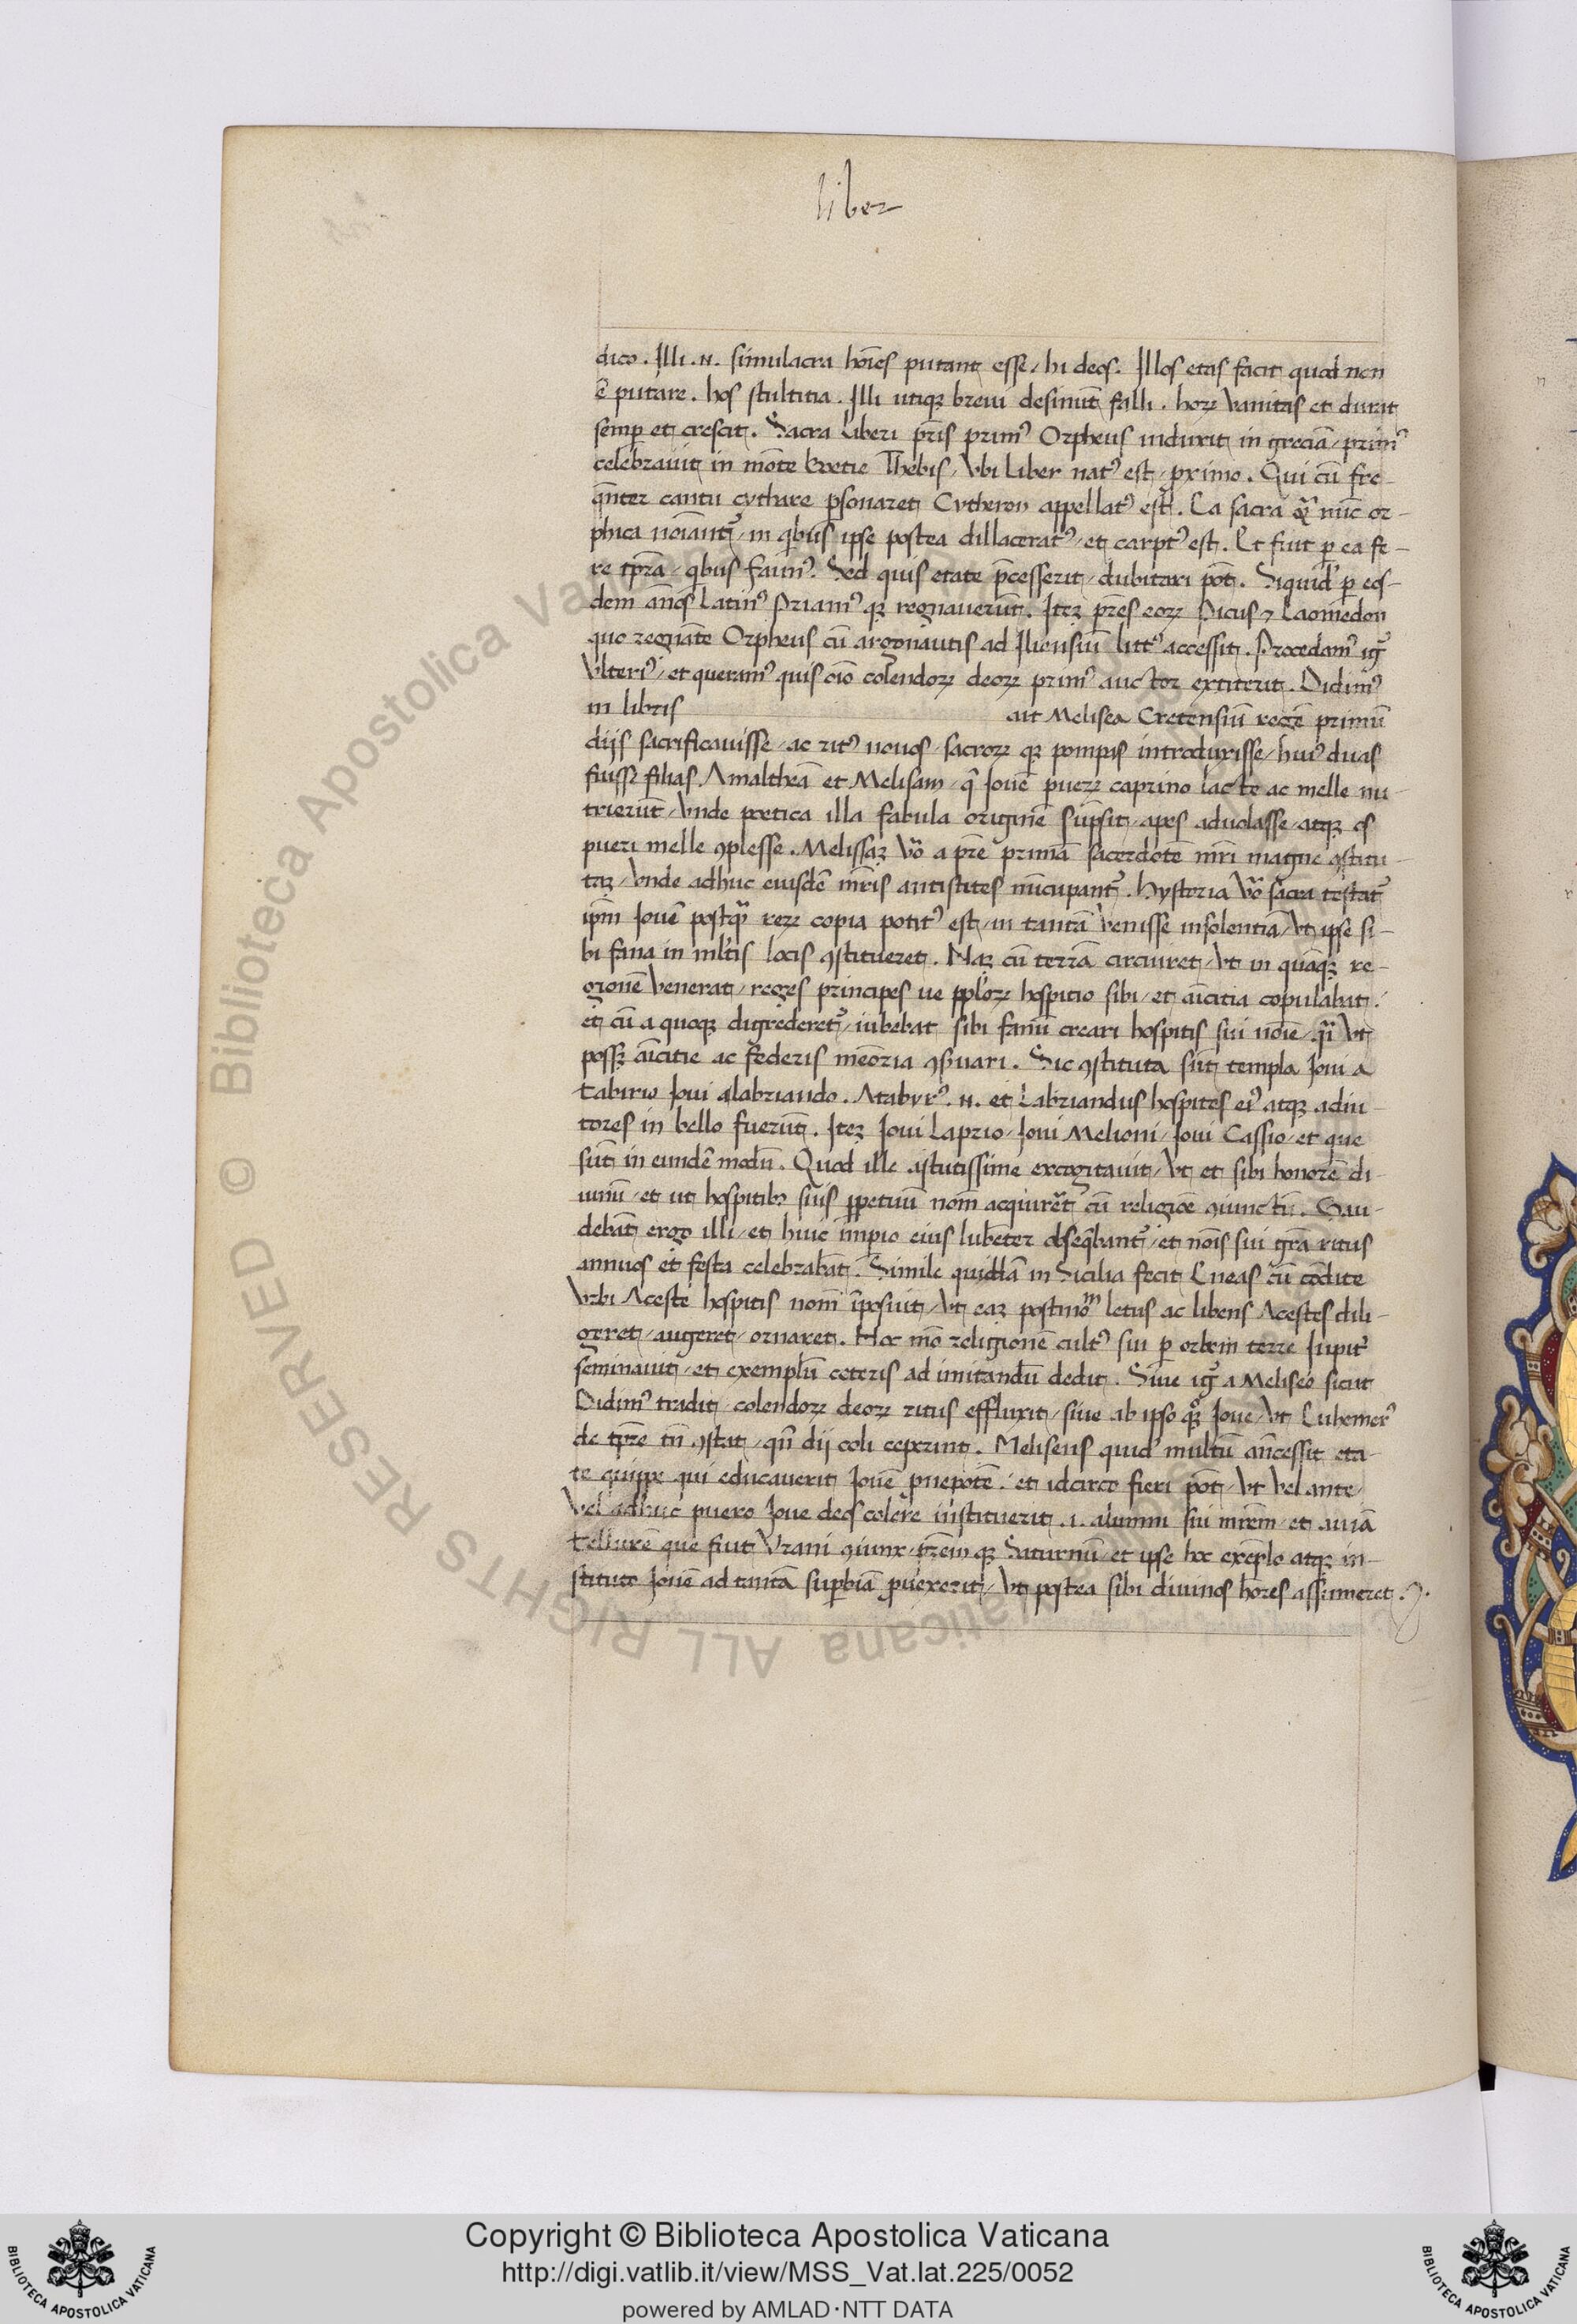 liber
dico . Illi .n. simulacra hoīes putant esse / hi deos . Illos etas facit quod non
ē putare . hos stultitia . Illi utiqꝫ breui desinūt falli . hoꝝ vanitas et durat
semꝑ et crescit . Sacra liberi pr̄is primꝰ Orpheus induxit in greciā / primꝰ
celebrauit in mōte boetie Thebis / vbi liber natꝰ est / proximo . Qui cū fre-
q̄nter cantu cythare ꝑsonaret Cytheron appellatꝰ est . Ea sacra et nūc or-
phica noīant᷑ / in qͥbus ipse postea dillaceratꝰ / et carptꝰ est . Et fuit ꝑ ea fe-
re tꝑa / qͥbus faunꝰ . Sed quis etate p̄cesserit / dubitari pōt . Siquid ꝑ eos-
dem annos latinꝰ Priamꝰ qꝫ regnauerūt . Iteꝫ pr̄es eoꝝ Picus ⁊ laomedon
quo regnāte Orpheus cū argonautis ad Iliensiū littꝰ accessit . Procedamꝰ ig᷑
vlteriꝰ / et queramꝰ quis oīo colendoꝝ deoꝝ primꝰ auctor extiterit . Didimꝰ
in libris ait Melisea Cretensiū regē primū
dijs sacrificauisse / ac ritꝰ nouos / sacroꝝ qꝫ pompas introduxisse / huiꝰ duas
fuisse filias Amaltheā et Melisam / q̄ Iouē pueꝝ caprino lacte ac melle nu-
trierūt / vnde poetica illa fabula originē sūpsit / apes aduolasse / atqꝫ os
pueri melle ꝯplesse . Melissaꝫ vo᷑ a pr̄e primā sacerdotē mr̄i magne ꝯstitu-
taꝫ / vnde adhuc eiusdē mr̄is antistites nūcupant᷑ . Hystoria vo᷑ sacra testat᷑
ip̄m Iouē postqͣ reꝝ copia potitꝰ est / in tantā venisse insolentiā / vt ipse si-
bi fana in ml̄tis locis ꝯstitueret . Naꝫ cū terrā circuiret / vt in quāqꝫ re-
gionē venerat / reges principes ue ppl̄oꝝ hospitio sibi / et aīcitia copulabat .
et cū a quoqꝫ digrederet᷑ / iubebat sibi fanū creari hospitis sui noīe / q̄i vt
possꝫ aīcitie ac federis meōria ꝯseruari . Sic ꝯstituta sūt templa Ioui a
tabirio Ioui alabriando . Atabyrꝰ .n. et Labriandus hospites eiꝰ atqꝫ adiu-
tores in bello fuerūt . Iteꝫ Ioui Laprio / Ioui Melioni / Ioui Cassio / et que
sūt in eundē modū . Quod ille astutissime excogitauit / vt et sibi honorē di-
uinū / et ut hospitibꝰ suis ꝑpetuū nom̄ acquirēt cū religiōe ꝯiunctū . Gau-
debāt ergo illi / et huic imꝑio eius lubēter obseqͥbant᷑ / et noīs sui gr̄a ritus
annuos et festa celebrabāt . Simile quiddā in Sicilia fecit Eneas cū cōdite
vrbi Aceste hospitis nom̄ īposuit / vt eaꝫ postmoᵐ letus ac libens Acestes dili-
geret / augeret / ornaret . Hoc mo᷑ religionē cultꝰ sui ꝑ orbem terre Iupit᷑
seminauit / et exemplū ceteris ad imitandū dedit . Siue ig᷑ a Meliseo sicut
Didimꝰ tradit / colendoꝝ deoꝝ ritus effluxit / siue ab ipso qꝫ Ioue / vt Euhemerꝰ
de tꝑe tn̄ ꝯstat / qn̄ dij coli ceperint . Meliseus quid᷑ multū an̄cessit eta-
te quippe qui educauerit Iouē pnepotē . et idcirco fieri pōt / vt vel ante /
vel adhuc puero Ioue deos colere instituerit .i. alumni sui mr̄em / et auiā
tellurē que fuit vrani ꝯiunx / pr̄em qꝫ Saturnū / et ipse hoc exēplo atqꝫ in-
stituto Iouē ad tantā suꝑbiā puexerit / vt postea sibi diuinos hōres assumeret .
Copyright © Biblioteca Apostolica Vaticana
http://digi.vatlib.it/view/MSS_Vat.lat.225/0052
powered by AMLAD·NTT DATA
BIBLIOTECA APOSTOLICA VATICANA
BIBLIOTECA APOSTOLICA VATICANA
© Biblioteca Apostolica Vaticana ALL RIGHTS RESERVED